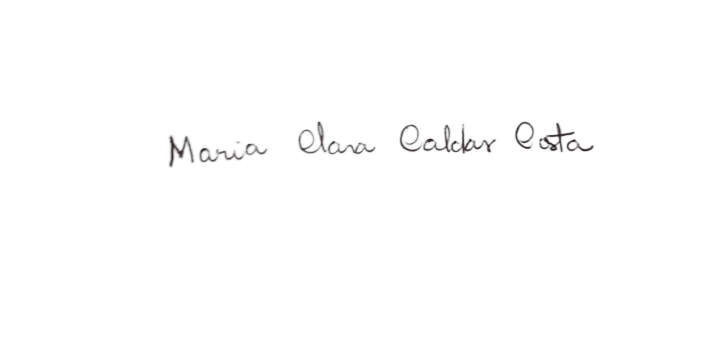 Maria Clara Caldas Costa